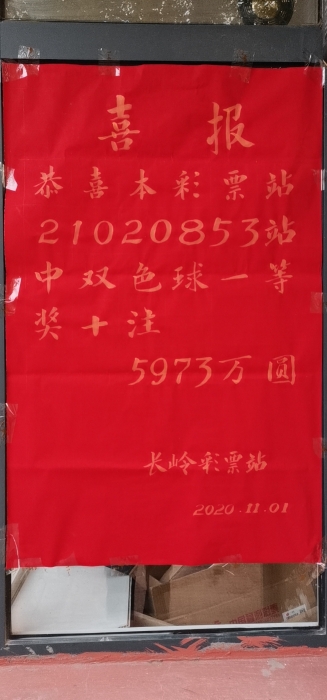 喜报
恭喜本彩票站
21020853站
中双色球一等
奖十注
5973万圆
长岭彩票站
2020.11.01